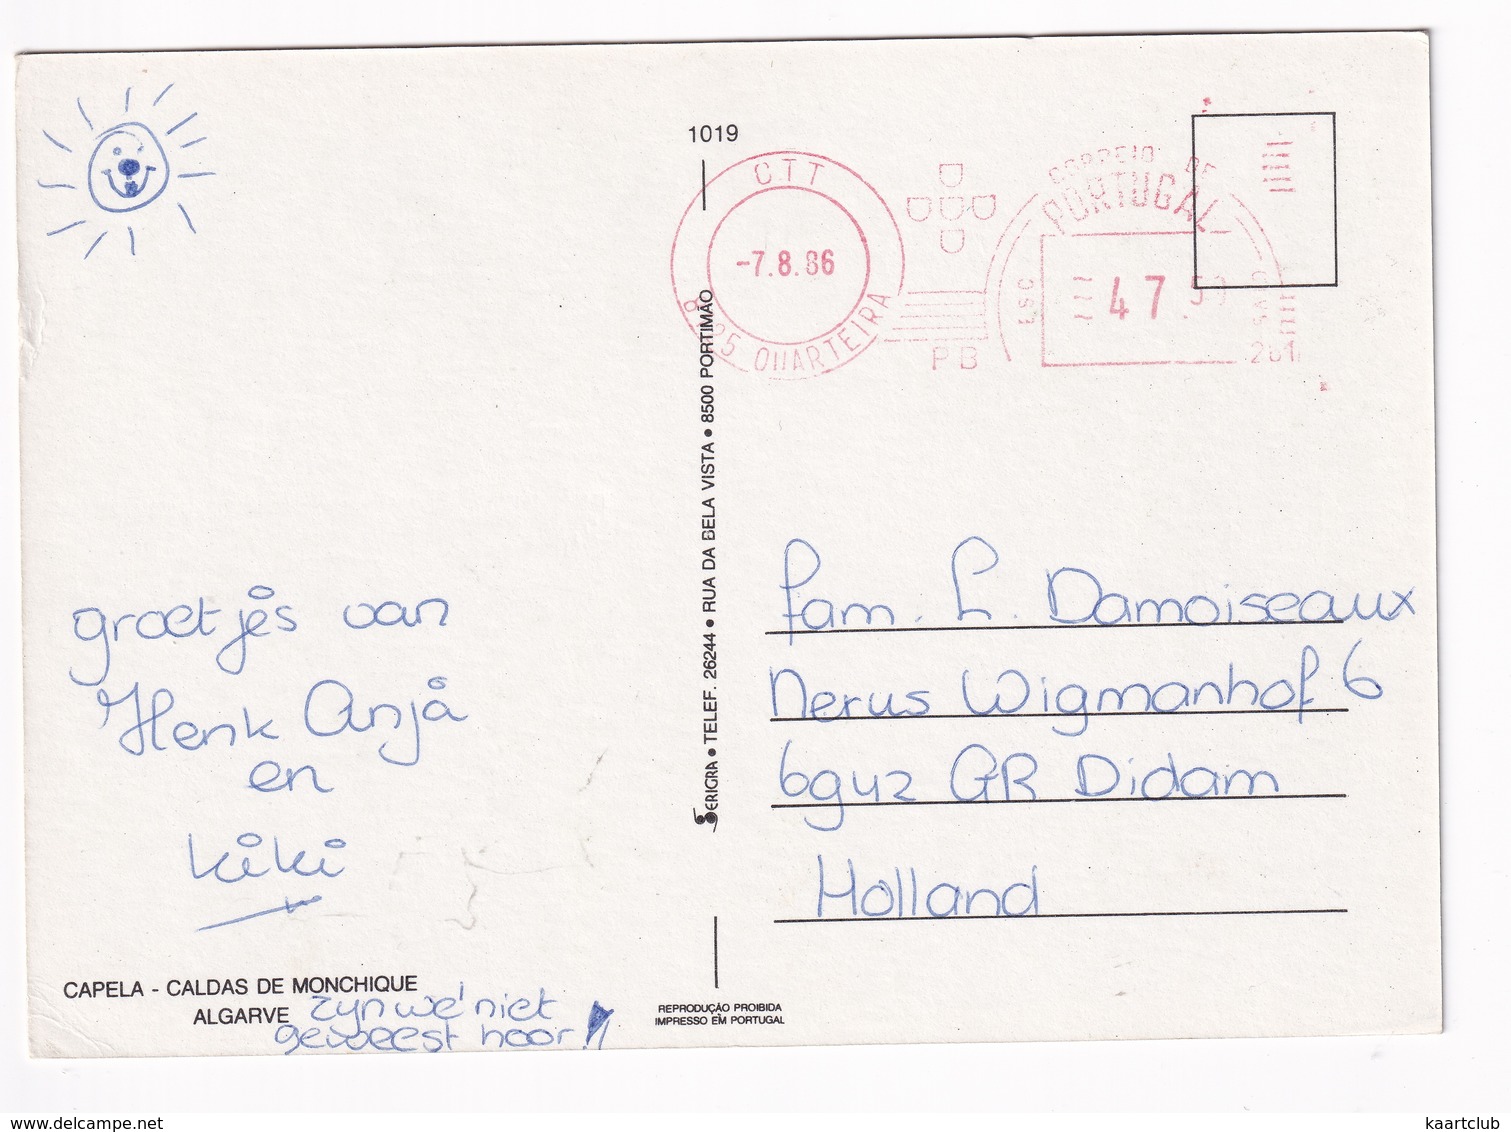 1019
CTT
-7.8.86
QUARTEIRA
PB
CORREIO DE
PORTUGAL
ESC
47
groetjes van
Henk Anja
en
kiki
CAPELA - CALDAS DE MONCHIQUE
ALGARVE zyn we niet
geweest hoor!
SERIGRA • TELEF. 26244 • RUA DA BELA VISTA • 8500 PORTIMÃO
REPRODUÇÃO PROIBIDA
IMPRESSO EM PORTUGAL
fam. L. Damoiseaux
Nerus Wigmanhof 6
6942 GR Didam
Holland
www.delcampe.net
kaartclub